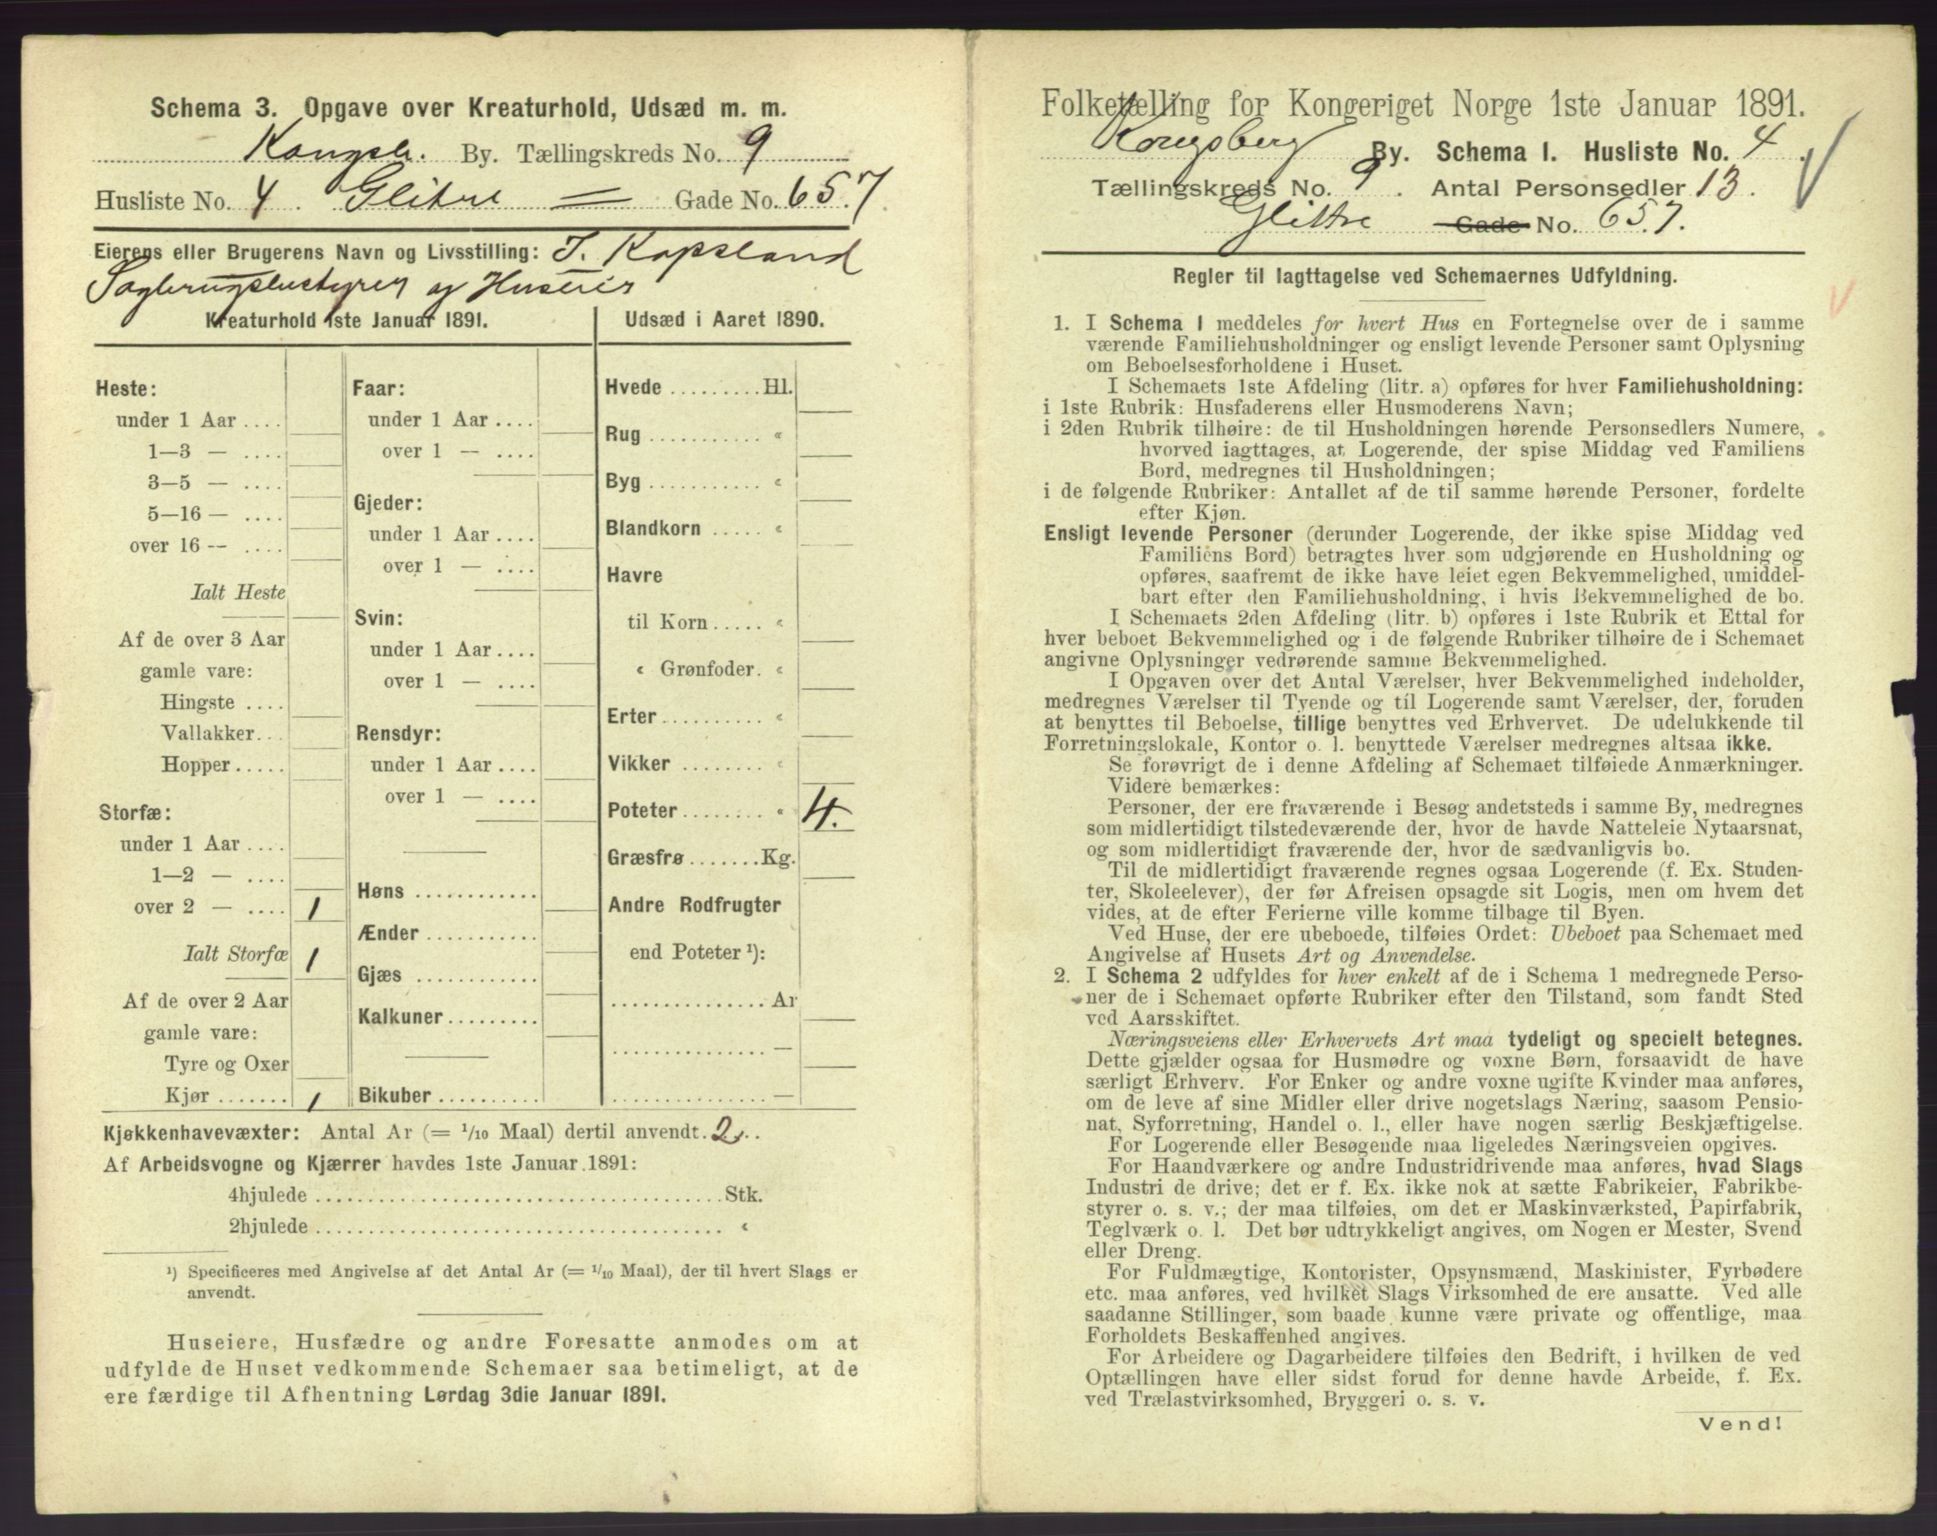 Schema 3. Opgave over Kreaturhold, Udsæd m. m.
Kongsb. By. Tællingskreds No. 9
Husliste No. 4. Glitre = Gade No. 657.
Eierens eller Brugerens Navn og Livsstilling: T. Kopsland
Sagbrugsbestyrer og Huseier
Kreaturhold 1ste Januar 1891.
Heste:
under 1 Aar ....
1—3 — ....
3—5 — ....
5—16 — ....
over 16 -- ....
Ialt Heste
Af de over 3 Aar
gamle vare:
Hingste ....
Vallakker...
Hopper.....
Storfæ:
under 1 Aar ....
1—2 — ....
over 2 — .... 1
Ialt Storfæ 1
Af de over 2 Aar
gamle vare:
Tyre og Oxer
Kjør ....... 1
Faar:
under 1 Aar ....
over 1 — ....
Gjeder:
under 1 Aar ....
over 1 — ....
Svin:
under 1 Aar ....
over 1 — ....
Rensdyr:
under 1 Aar ....
over 1 — ....
Høns ............
Ænder ...........
Gjæs ............
Kalkuner.........
Bikuber ..........
Udsæd i Aaret 1890.
Hvede ......... Hl.
Rug ........... «
Byg ........... «
Blandkorn ..... «
Havre
til Korn ..... «
« Grønfoder. «
Erter.......... «
Vikker ........ «
Poteter ........ « 4.
Græsfrø ....... Kg.
Andre Rodfrugter
end Poteter ¹):
............... Ar
............... —
............... —
Kjøkkenhavevæxter: Antal Ar (= 1/10 Maal) dertil anvendt. 2...
Af Arbeidsvogne og Kjærrer havdes 1ste Januar 1891:
4hjulede ........................................ Stk.
2hjulede ........................................ «
¹) Specificeres med Angivelse af det Antal Ar (= 1/10 Maal), der til hvert Slags er
anvendt.
Huseiere, Husfædre og andre Foresatte anmodes om at
udfylde de Huset vedkommende Schemaer saa betimeligt, at de
ere færdige til Afhentning Lørdag 3die Januar 1891.
Folketælling for Kongeriget Norge 1ste Januar 1891.
Kongsberg By. Schema I. Husliste No. 4
Tællingskreds No. 9. Antal Personsedler 13.
Glittre Gade No. 657.
Regler til Iagttagelse ved Schemaernes Udfyldning.
1. I Schema I meddeles for hvert Hus en Fortegnelse over de i samme
værende Familiehusholdninger og ensligt levende Personer samt Oplysning
om Beboelsesforholdene i Huset.
I Schemaets 1ste Afdeling (litr. a) opføres for hver Familiehusholdning:
i 1ste Rubrik: Husfaderens eller Husmoderens Navn;
i 2den Rubrik tilhøire: de til Husholdningen hørende Personsedlers Numere,
hvorved iagttages, at Logerende, der spise Middag ved Familiens
Bord, medregnes til Husholdningen;
i de følgende Rubriker: Antallet af de til samme hørende Personer, fordelte
efter Kjøn.
Ensligt levende Personer (derunder Logerende, der ikke spise Middag ved
Familiens Bord) betragtes hver som udgjørende en Husholdning og
opføres, saafremt de ikke have leiet egen Bekvemmelighed, umiddel-
bart efter den Familiehusholdning, i hvis Bekvemmelighed de bo.
I Schemaets 2den Afdeling (litr. b) opføres i 1ste Rubrik et Ettal for
hver beboet Bekvemmelighed og i de følgende Rubriker tilhøire de i Schemaet
angivne Oplysninger vedrørende samme Bekvemmelighed.
I Opgaven over det Antal Værelser, hver Bekvemmelighed indeholder,
medregnes Værelser til Tyende og til Logerende samt Værelser, der, foruden
at benyttes til Beboelse, tillige benyttes ved Erhvervet. De udelukkende til
Forretningslokale, Kontor o. l. benyttede Værelser medregnes altsaa ikke.
Se forøvrigt de i denne Afdeling af Schemaet tilføiede Anmærkninger.
Videre bemærkes:
Personer, der ere fraværende i Besøg andetsteds i samme By, medregnes
som midlertidigt tilstedeværende der, hvor de havde Natteleie Nytaarsnat,
og som midlertidigt fraværende der, hvor de sædvanligvis bo.
Til de midlertidigt fraværende regnes ogsaa Logerende (f. Ex. Studen-
ter, Skoleelever), der før Afreisen opsagde sit Logis, men om hvem det
vides, at de efter Ferierne ville komme tilbage til Byen.
Ved Huse, der ere ubeboede, tilføies Ordet: Ubeboet paa Schemaet med
Angivelse af Husets Art og Anvendelse.
2. I Schema 2 udfyldes for hver enkelt af de i Schema 1 medregnede Perso-
ner de i Schemaet opførte Rubriker efter den Tilstand, som fandt Sted
ved Aarsskiftet.
Næringsveiens eller Erhvervets Art maa tydeligt og specielt betegnes.
Dette gjælder ogsaa for Husmødre og voxne Børn, forsaavidt de have
særligt Erhverv. For Enker og andre voxne ugifte Kvinder maa anføres,
om de leve af sine Midler eller drive nogetslags Næring, saasom Pensio-
nat, Syforretning, Handel o. l., eller have nogen særlig Beskjæftigelse.
For Logerende eller Besøgende maa ligeledes Næringsveien opgives.
For Haandværkere og andre Industridrivende maa anføres, hvad Slags
Industri de drive; det er f. Ex. ikke nok at sætte Fabrikeier, Fabrikbe-
styrer o. s. v.; der maa tilføies, om det er Maskinværksted, Papirfabrik,
Teglværk o. l. Det bør udtrykkeligt angives, om Nogen er Mester, Svend
eller Dreng.
For Fuldmægtige, Kontorister, Opsynsmænd, Maskinister, Fyrbødere
etc. maa anføres, ved hvilket Slags Virksomhed de ere ansatte. Ved alle
saadanne Stillinger, som baade kunne være private og offentlige, maa
Forholdets Beskaffenhed angives.
For Arbeidere og Dagarbeidere tilføies den Bedrift, i hvilken de ved
Optællingen have eller sidst forud for denne havde Arbeide, f. Ex.
ved Trælastvirksomhed, Bryggeri o. s. v.
Vend!